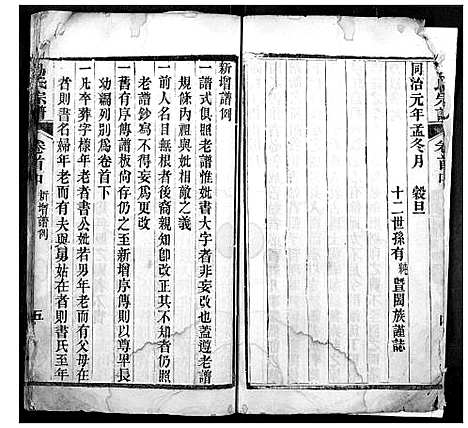 同治元年孟冬月　穀旦
十二世孫有　暨闔族謹誌
新增譜例
一譜式俱照老譜惟妣書大字者非妄改也蓋遵老譜
規條內裡與妣相敵之義
一前人名目無根者後裔親知卽改正其不知者仍照
老譜鈔寫不得妄爲更改
一舊有序傳譜板尙存仍之至新增序傳則以尊卑長
幼編列別爲卷首下
一凡卒葬字樣年老者書公妣若男年老而有父母在
者則書名婦年老而有夫與舅姑在者則書氏至年
宗譜
卷首中
新增譜例
五
宗譜
卷首中